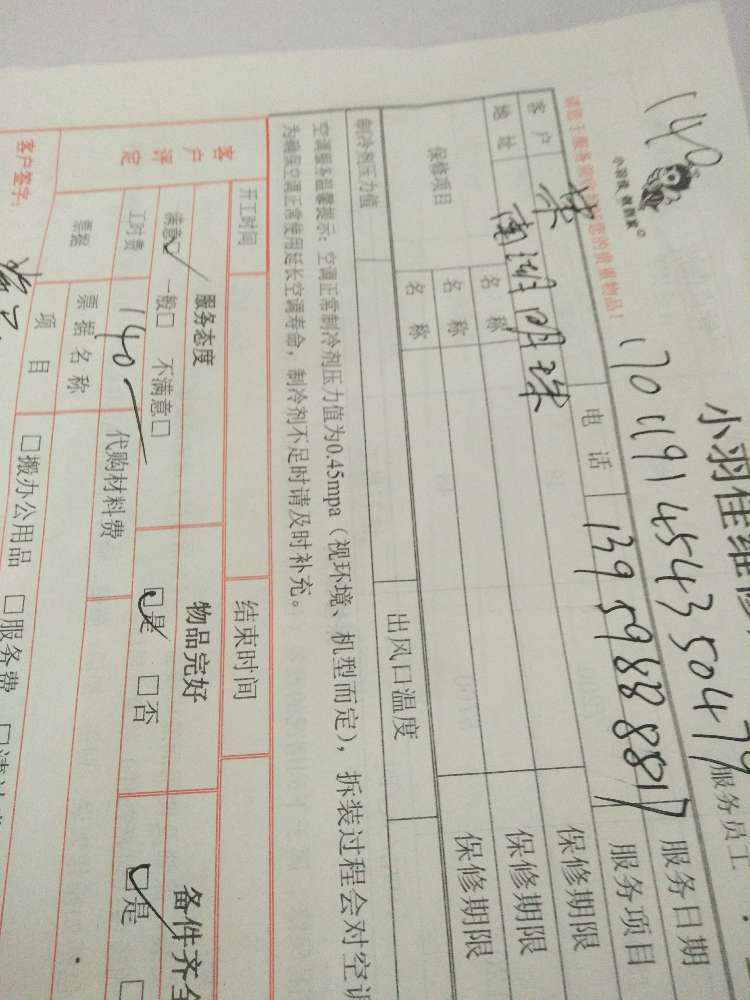 140
小羽佳维修
170119145435047
服务员工：
小羽佳，做到家
请您于服务前收好您的贵重物品！
服务日期
客户 荣 电话 13959888817 服务项目
地址 南湖明珠
保修项目 名称 保修期限
名称 保修期限
名称 保修期限
制冷剂压力值 出风口温度
空调服务温馨提示：空调正常制冷剂压力值为0.45mpa（视环境、机型而定），拆装过程会对空调
为确保空调正常使用延长空调寿命，制冷剂不足时请及时补充。
开工时间 结束时间
客户评定 服务态度 物品完好 备件齐全
满意☑ 一般□ 不满意□ ☑是 □否 ☑是 □
工时费 140 代购材料费
票据 票据名称
项目 □搬办公用品 □服务费
客户签字：